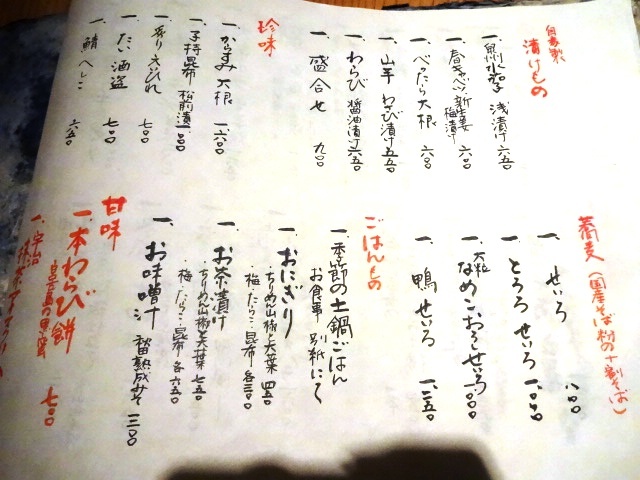 自家製
漬けもの
一、泉州水茄子 浅漬け 六五〇
一、春キャベツ、新生姜 梅漬け 六〇〇
一、べったら大根 六〇〇
一、山芋 わさび漬け 五五〇
一、わらび 醤油漬け 六五〇
一、盛合せ 九〇〇
珍味
一、からすみ大根 一、六〇〇
一、子持昆布 松前漬 一、〇〇〇
一、炙りえいひれ 七〇〇
一、たい酒盗 七〇〇
一、鯖へしこ 六五〇
蕎麦（国産そば粉の十割そば）
一、せいろ 八〇〇
一、とろろせいろ 一、〇〇〇
一、大粒なめこおろしせいろ 一、〇〇〇
一、鴨せいろ 一、二五〇
ごはんもの
一、季節の土鍋ごはん
お食事 別紙にて
一、おにぎり
・ちりめん山椒と大葉 四五〇
・梅・たらこ・昆布 各三〇〇
一、お茶漬け
・ちりめん山椒と大葉 七五〇
・梅・たらこ・昆布 各六五〇
一、お味噌汁 秘熟成みそ 三〇〇
甘味
一、本わらび餅 七〇〇
一、宇治抹茶アイス